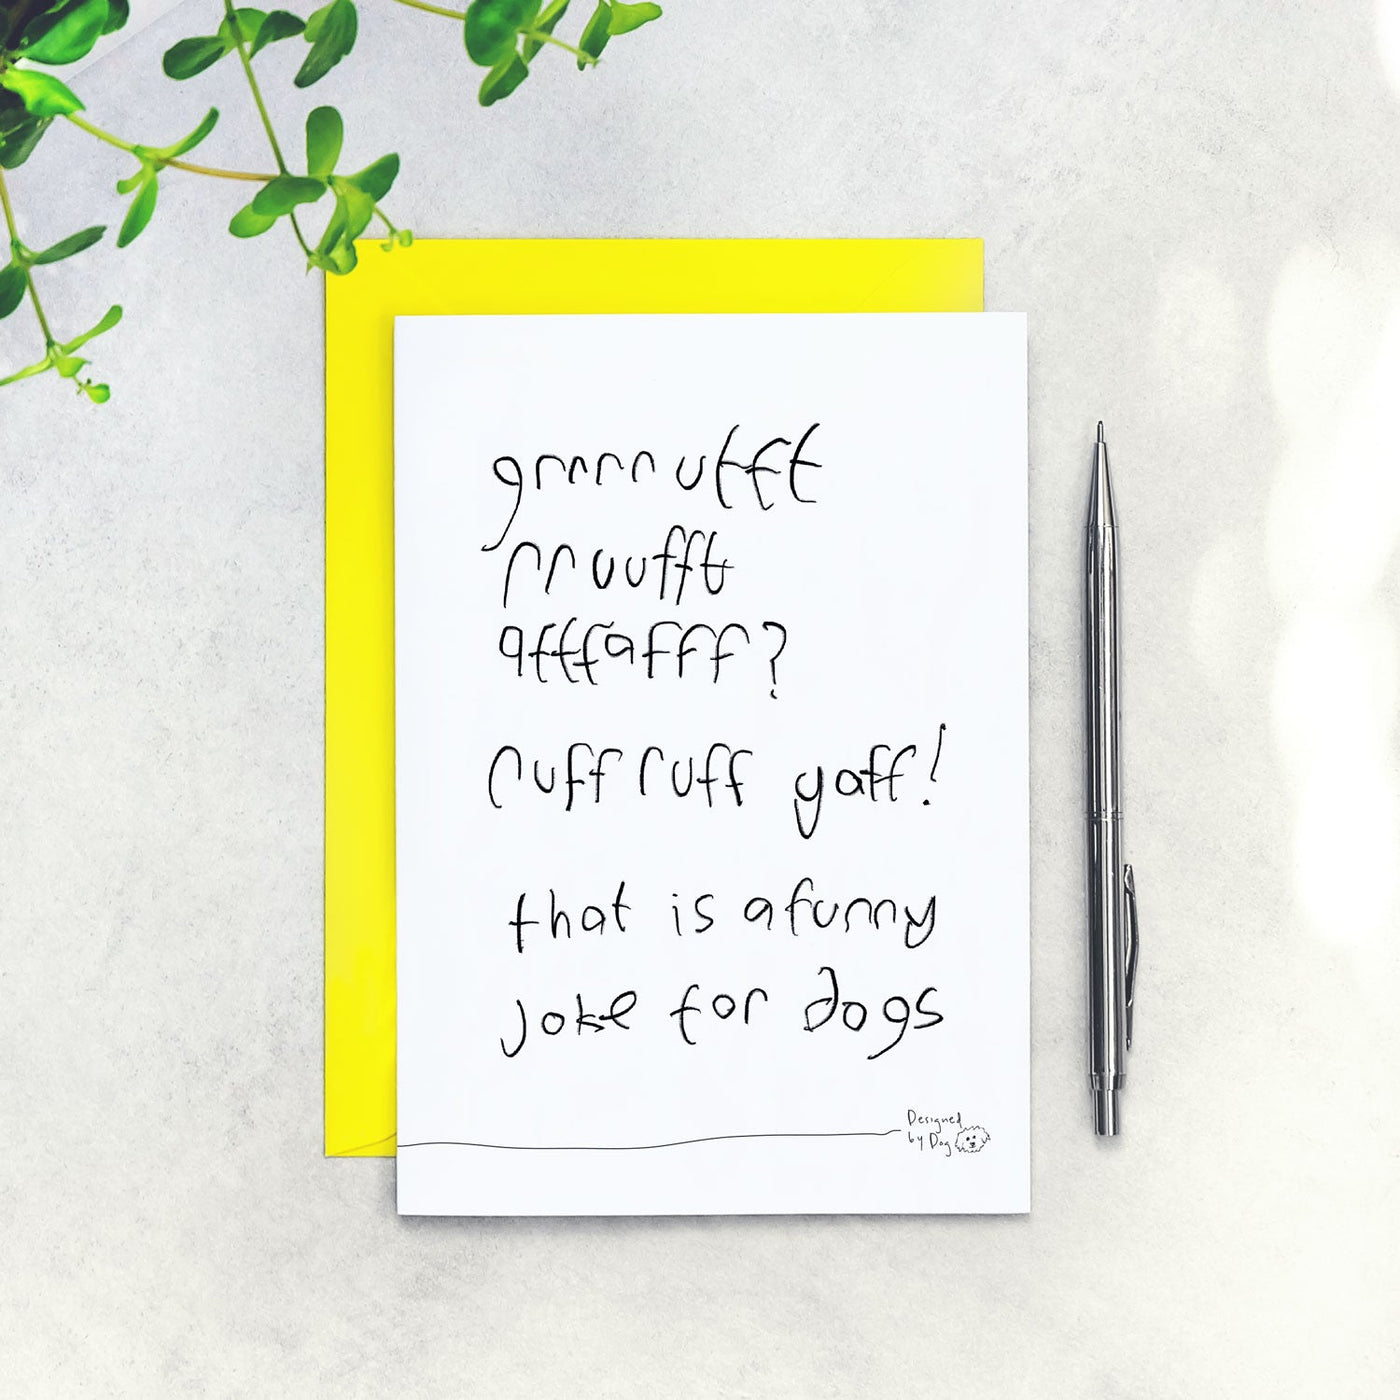 grrrr ufft
rruufft
afffafff?
ruff ruff yaff!
that is a funny
joke for dogs
Designed
by Dog